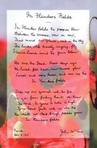 In Flanders Fields
In Flanders fields the poppies grow
Between the crosses, row on row
That mark our place: and in the sky
The larks still bravely singing, fly
Scarce heard amid the guns below.
We are the Dead. Short days ago
We lived, felt dawn, saw sunset glow,
Loved, and were loved, and now we lie
In Flanders fields
Take up our quarrel with the foe:
To you from failing hands we throw
The torch: be yours to hold it high
If ye break faith with us who die
We shall not sleep, though poppies grow
In Flanders fields
John McCrae